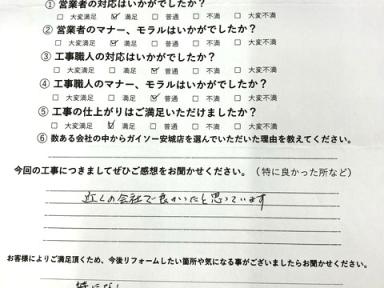 ① 営業者の対応はいかがでしたか？
□ 大変満足 ☑ 満足 □ 普通 □ 不満 □ 大変不満
② 営業者のマナー、モラルはいかがでしたか？
□ 大変満足 ☑ 満足 □ 普通 □ 不満 □ 大変不満
③ 工事職人の対応はいかがでしたか？
□ 大変満足 □ 満足 ☑ 普通 □ 不満 □ 大変不満
④ 工事職人のマナー、モラルはいかがでしたか？
□ 大変満足 □ 満足 ☑ 普通 □ 不満 □ 大変不満
⑤ 工事の仕上がりはご満足いただけましたか？
□ 大変満足 ☑ 満足 □ 普通 □ 不満 □ 大変不満
⑥ 数ある会社の中からガイソー安城店を選んでいただいた理由を教えてください。
今回の工事につきましてぜひご感想をお聞かせください。（特に良かった所など）
近くの会社で良かったと思っています
お客様によりご満足頂くため、今後リフォームしたい箇所や気になる事がございましたらお聞かせください。
特になし